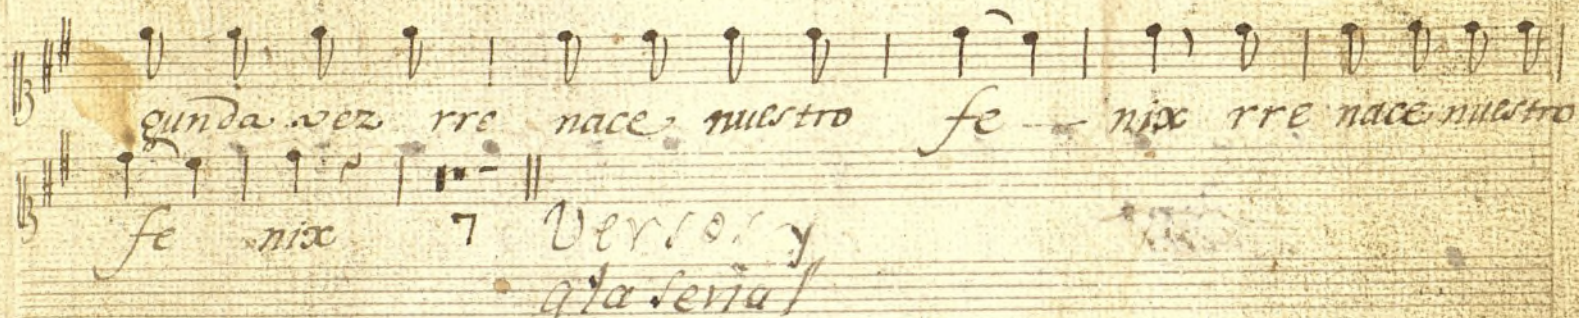 gunda vez rre nace nuestro fe - nix rre nace nuestro
fe nix 7 Versos y
a la señal